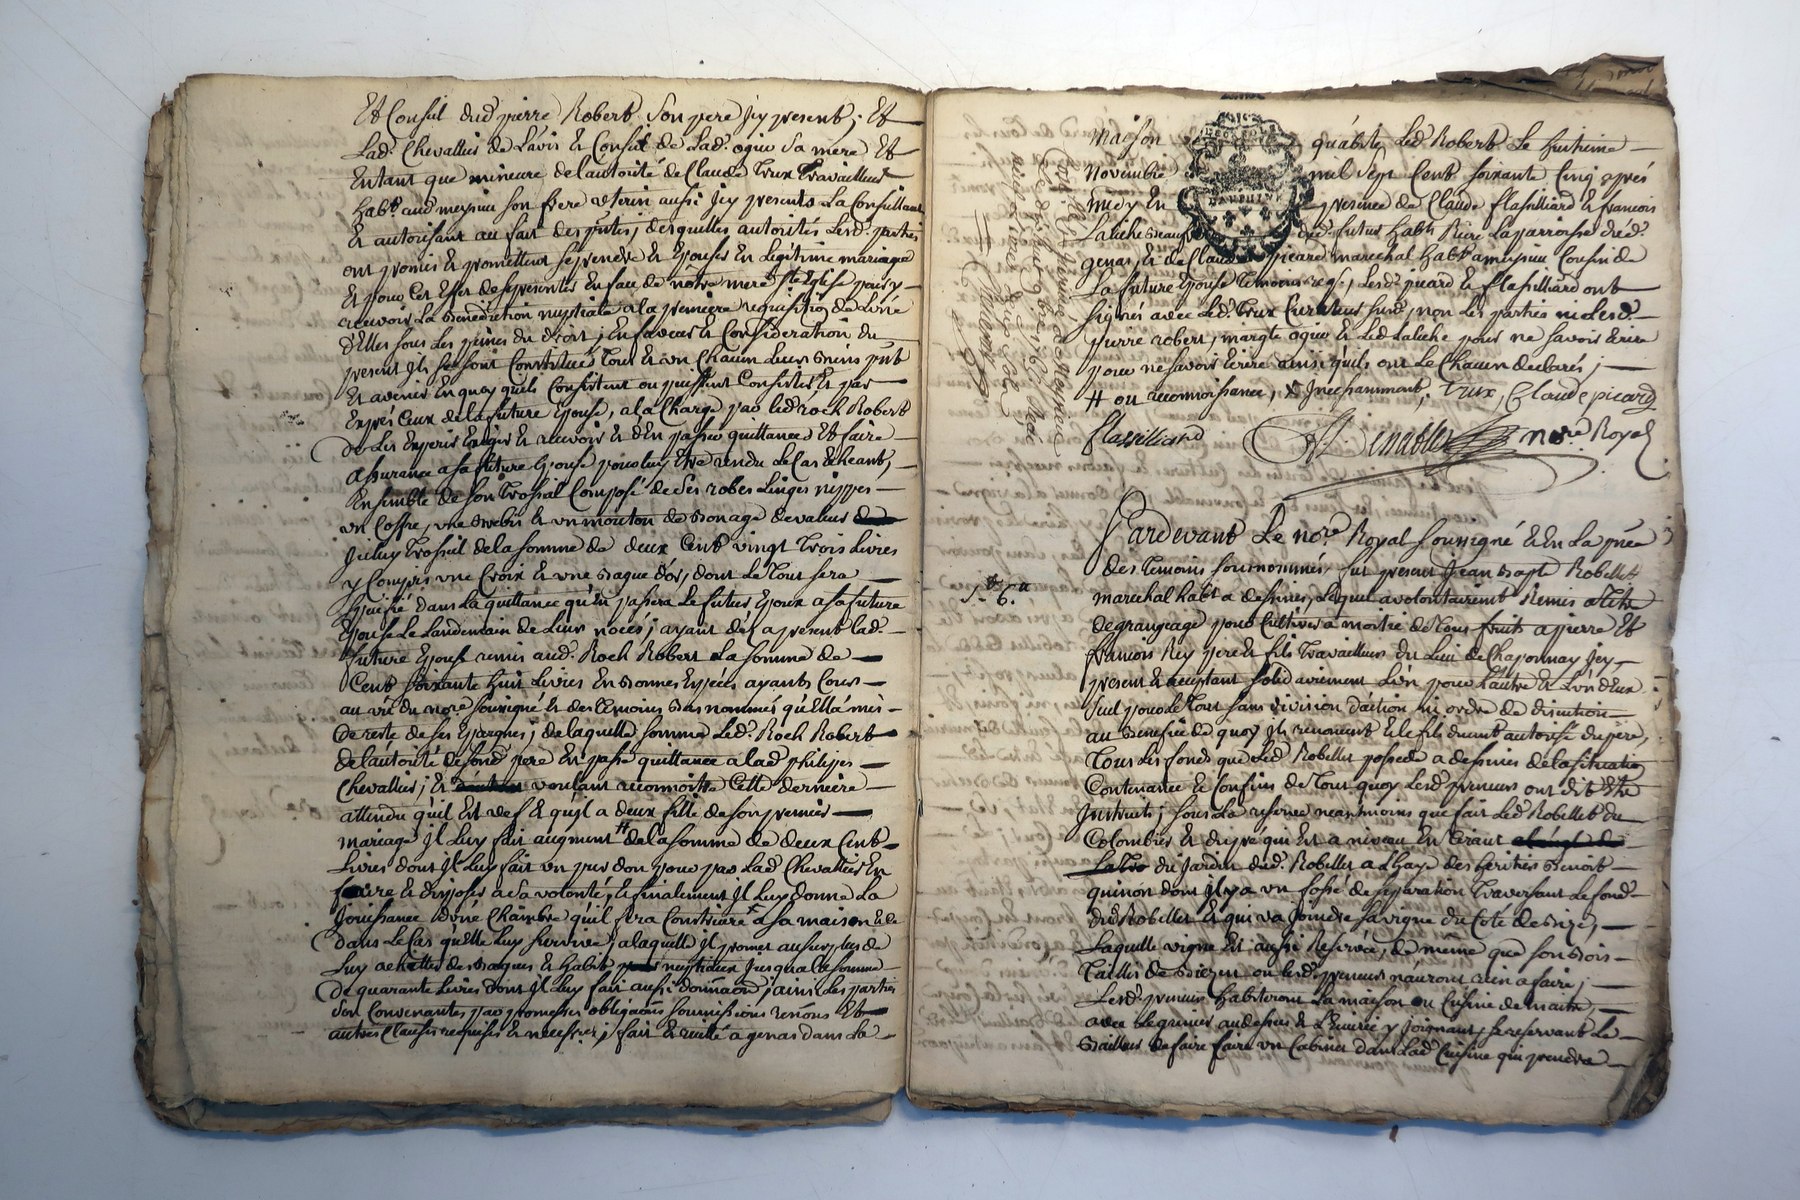 Et Conseil dud. pierre Robert son pere jcy present ; Et
Lad. Chevallier de l'avis & Conseil de Lad. ogier sa mere Et
Entant que mineure de l'autorité de Claude Trux Travailleur
habt. aud. meysieu son frere uterin aussi jcy presents La Conseillant
Et autorisant au fait des pntes ; desquelles autorités Lesd. parties
ont promis Et promettent se prendre & Epouser En Legitime mariage
Et pour Cet Effet se presenter En face de nôtre mere Ste Eglise pour y
recevoir La Benediction nuptiale a la premiere requisition de L'une
d'Elles sous Les peines du droit ; En faveur & Consideration du
present jls se sont Constitués Tout & un Chacun Leurs Biens pnts
Et avenir En quoy quils Consistent ou puissent Consister, Et par
Exprés Ceux de la future Epouse, a la Charge par led. roch Robert
de Les Exiger & recevoir & d'En passer quittances Et faire
assurance a sa future Epouse pour luy Etre rendu Le Cas Echeant,
Ensemble de son Trossal Composé de ses robes Linges nippes
un Coffre, une Brebis & un mouton de Bonage de valeur
jceluy Trossel de la somme de deux Cent vingt Trois Livres
y Compris une Croix & une Bague d'or, dont Le Tout sera
Specifié dans La quittance qu'En passera Le futur Epoux a sa future
Epouse Le Landemain de Leurs noces ; ayant dés a present lad.
future Epouse remis aud. Roch Robert La somme de
Cent soixante huit Livres En Bonnes Espéces ayants Cours
au vû du nore soussigné & des temoins Bas nommés qu'Ella mis
de reste de ses Epargnes ; de laquelle somme Led. Roch Robert
de l'autorité de sond. pere En passe quittance a lad. philipes
Chevallier ; Et voulant reconnoitre Cette derniere
attendu qu'il Est vef & qu'jl a deux fille de son premier
mariage jl Luy fait augment # de la somme de deux Cent
Livres dont jl Luy fait un pur don pour par Lad. Chevallier En
faire & disposer a sa volonté, & finalement jl Luy donne La
Jouissance d'une Chambre qu'il fera Construire x a sa maison & Ce
dans Le Cas qu'Elle Luy survive, a laquelle jl promet au surplus de
Luy achetter des Bagues & habits nuptiaux jusqu'a la somme
de quarante Livres dont jl Luy fait aussi donnaõn ; ainsi Les parties
Son Convenantes par promesses obligaõns soumissions renons Et
autres Clauses requises & necessres ; fait & recitté a genas dans La
maison qu'abite Led. Robert Le huitieme
Novembre mil sept Cent soixante Cinq aprés
midy En presence de Claude flassilliard & francois
Laliche dud. futur habts. Riere La parroisse dud.
genas, & de Claude picard marechal habt. a meysieu Cousin de
La future Epouse temoins reqs., Lesd. picard & flassilliard ont
signés avec Led. Trux Curateur susd., non Les parties ni Lesd.
pierre robert, margte ogier & Led. Laliche pour ne savoir Ecrire
pour ne savoir Ecrire ainsi qu'ils ont Le Chacun declarés ;
# ou reconnoissance, x Jncessamment, Trux, Claude picard
flassilliard nore. Royal
Pardevant Le nore. Royal soussigné & En La pnce
des temoins sousnommés fut present Jean Bapte Robellet
5.# 6.s
marechal habt. a dessines, Lequel a volontairemt. Remis a titre
de grangeage pour Cultiver a moitié de Tous fruits a pierre Et
francois Rey pere & fils Travailleurs du Lieu de Chaponnay jcy
present & acceptant solidairement L'un pour L'autre & L'un d'Eux
seul pour le Tout sans division d'action ni ordre de discution
au Benefice de quoy jls renoncent & le fils dument autorisé du pere,
Tous les fonds que Led. Robellet possede a dessines de la situation
Contenance & Confins de Tout quoy Lesd. preneurs ont dit Etre
Jnstruits ; sous La reserve neanmoins que fait Led. Robellet du
Colombier & du pré qui Est a niveau En tirant
du Jardin dud. Robellet a L'haye des heritiers Benoit
guinon dont jl y a un fossé de separation Traversant Le fond
dud. Robellet & qui va joindre sa vigne du Coté de Bize,
Laquelle vigne Est aussi Reservée, de même que son Bois
Taillis de Biezin ou lesd. preneurs n'auront rien a faire ;
Lesd. preneurs habiteront La maison ou Cuisine de maitre,
avec Le grenier au dessus & L'Ecurie y joignant, se reservant Le
Bailleur de faire faire un Cabinet dans Lad. Cuisine qui prendra